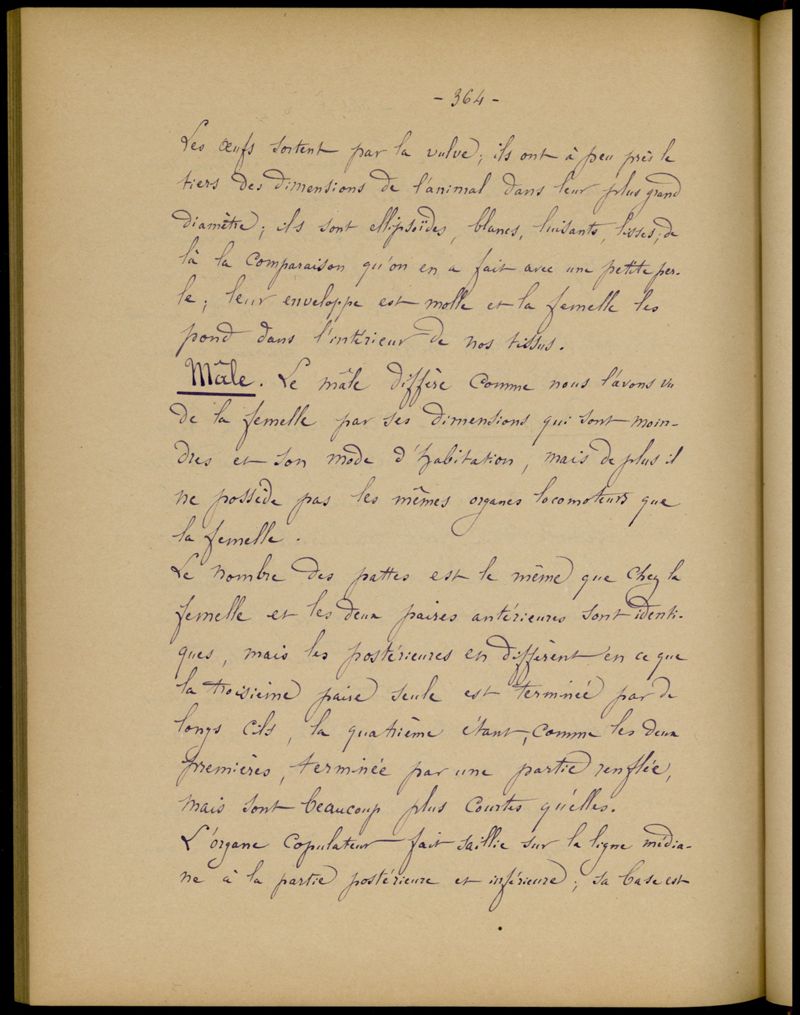 - 364 -
Les œufs sortent par la vulve; ils ont à peu près le
tiers des dimensions de l'animal dans leur plus grand
diamètre; ils sont ellipsoïdes, blancs, luisants, lisses; de
là la comparaison qu'on en a fait avec une petite per-
le; leur enveloppe est molle et la femelle les
pond dans l'intérieur de nos tissus.
Mâle. Le mâle diffère comme nous l'avons vu
de la femelle par ses dimensions qui sont moin-
dres et son mode d'habitation, mais de plus il
ne possède pas les mêmes organes locomoteurs que
la femelle.
Le nombre des pattes est le même que chez la
femelle et les deux paires antérieures sont identi-
ques, mais les postérieures en diffèrent en ce que
la troisième paire seule est terminée par de
longs cils, la quatrième étant, comme les deux
premières, terminée par une partie renflée,
mais sont beaucoup plus courtes qu'elles.
L'organe copulateur fait saillie sur la ligne média-
ne à la partie postérieure et inférieure; sa base est